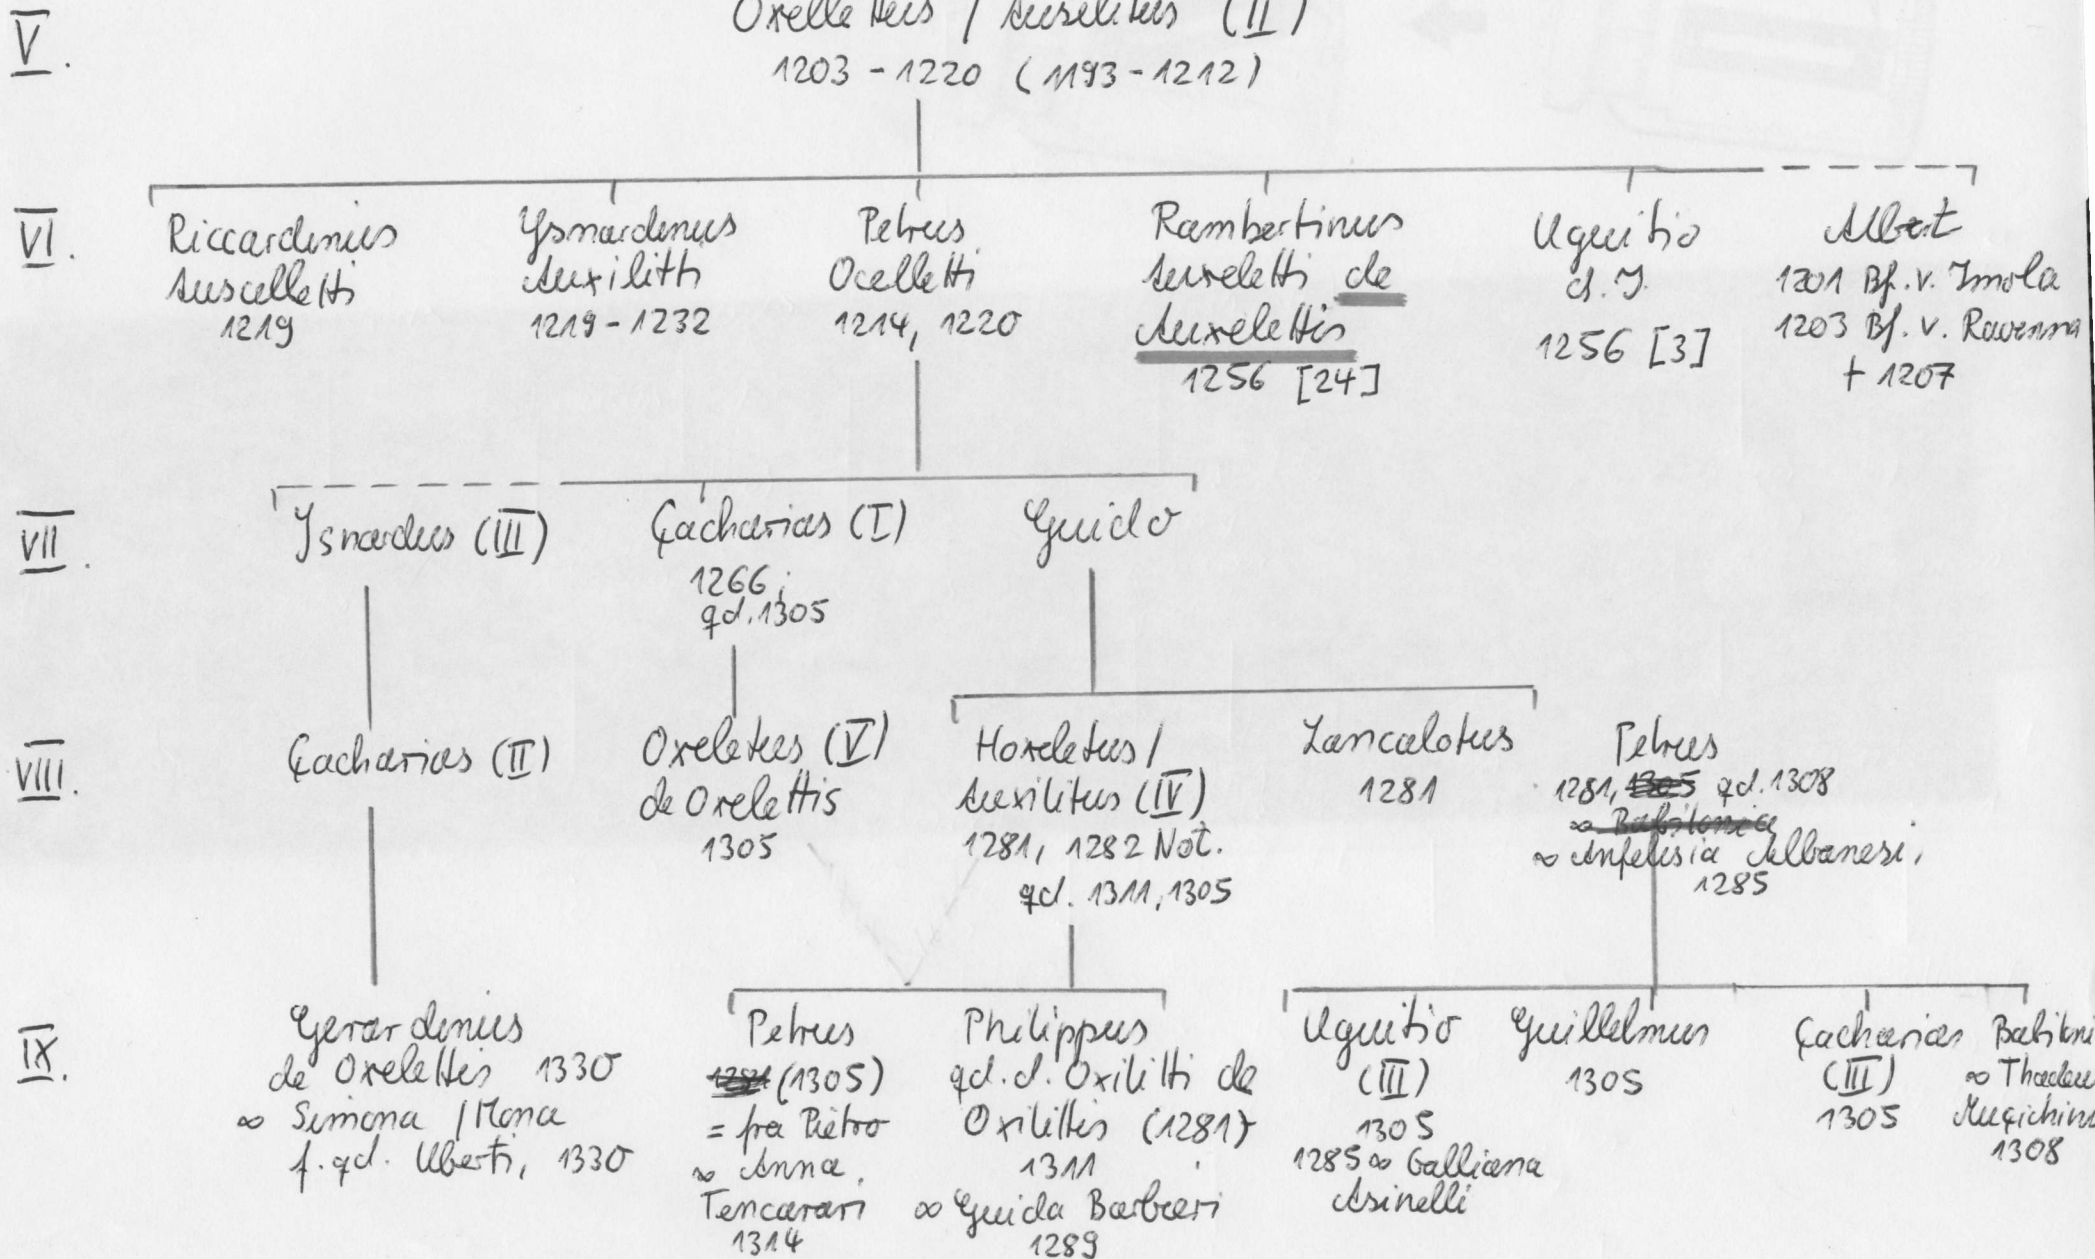 V.
Oxellettus / Auxilitus (II)
1203 - 1220 (1193 - 1212)
VI.
Riccardinus
Auscelletti
1219
Ysnardinus
Auxilitti
1219 - 1232
Petrus
Ocelletti
1214, 1220
Rambertinus
Auxeletti de
Auxelettis
1256 [24]
Uguitio
d. J.
1256 [3]
Albert
1201 Bf. v. Imola
1203 Bf. v. Ravenna
† 1207
VII.
Isnardus (III)
Çacharias (I)
1266;
qd. 1305
Guido
VIII.
Çacharias (II)
Oxeletus (V)
de Oxelettis
1305
Hoxeletus /
Auxilitus (IV)
1281, 1282 Not.
qd. 1311, 1305
Lancalotus
1281
Petrus
1281, 1305 qd. 1308
∞ Babilonia
∞ Anfelisia Albanesi,
1285
IX.
Gerardinus
de Oxelettis 1330
∞ Simona / Mona
f. qd. Uberti, 1330
Petrus
1281 (1305)
= fra Pietro
∞ Anna
Tencarari
1314
Philippus
qd. d. Oxilitti de
Oxilittis (1281)
1311
∞ Guida Barbieri
1289
Uguitio
(III)
1305
1285 ∞ Galliana
Asinelli
Guillelmus
1305
Çacharias
(III)
1305
∞
1308